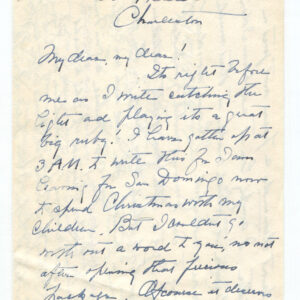 Charleston
My dear, my dear!
Its right before
me as I write catching the
light and playing its a great
big ruby! I have gotten up at
3 A.M. to write this for I am
leaving for San Domingo now
to spend Christmas with my
children. But I couldn't go
with out a word to you, no not
after opening that precious
package. Of course it deserves